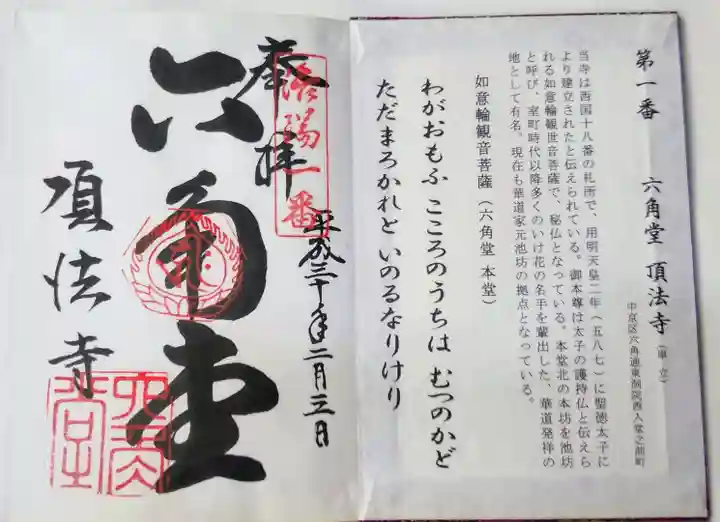 第一番　六角堂　頂法寺（単立）
中京区六角通東洞院西入堂之前町
当寺は西国十八番の札所で、用明天皇二年（五八七）に聖徳太子に
より建立されたと伝えられている。御本尊は太子の護持仏と伝えら
れる如意輪観世音菩薩で、秘仏となっている。本堂北の本坊を池坊
と呼び、室町時代以降多くのいけ花の名手を輩出した、華道発祥の
地として有名。現在も華道家元池坊の拠点となっている。
如意輪観音菩薩（六角堂 本堂）
わがおもふ こころのうちは むつのかど
ただまろかれと いのるなりけり
奉拝
洛陽一番
平成三十年二月三日
六角堂
頂法寺
六角堂